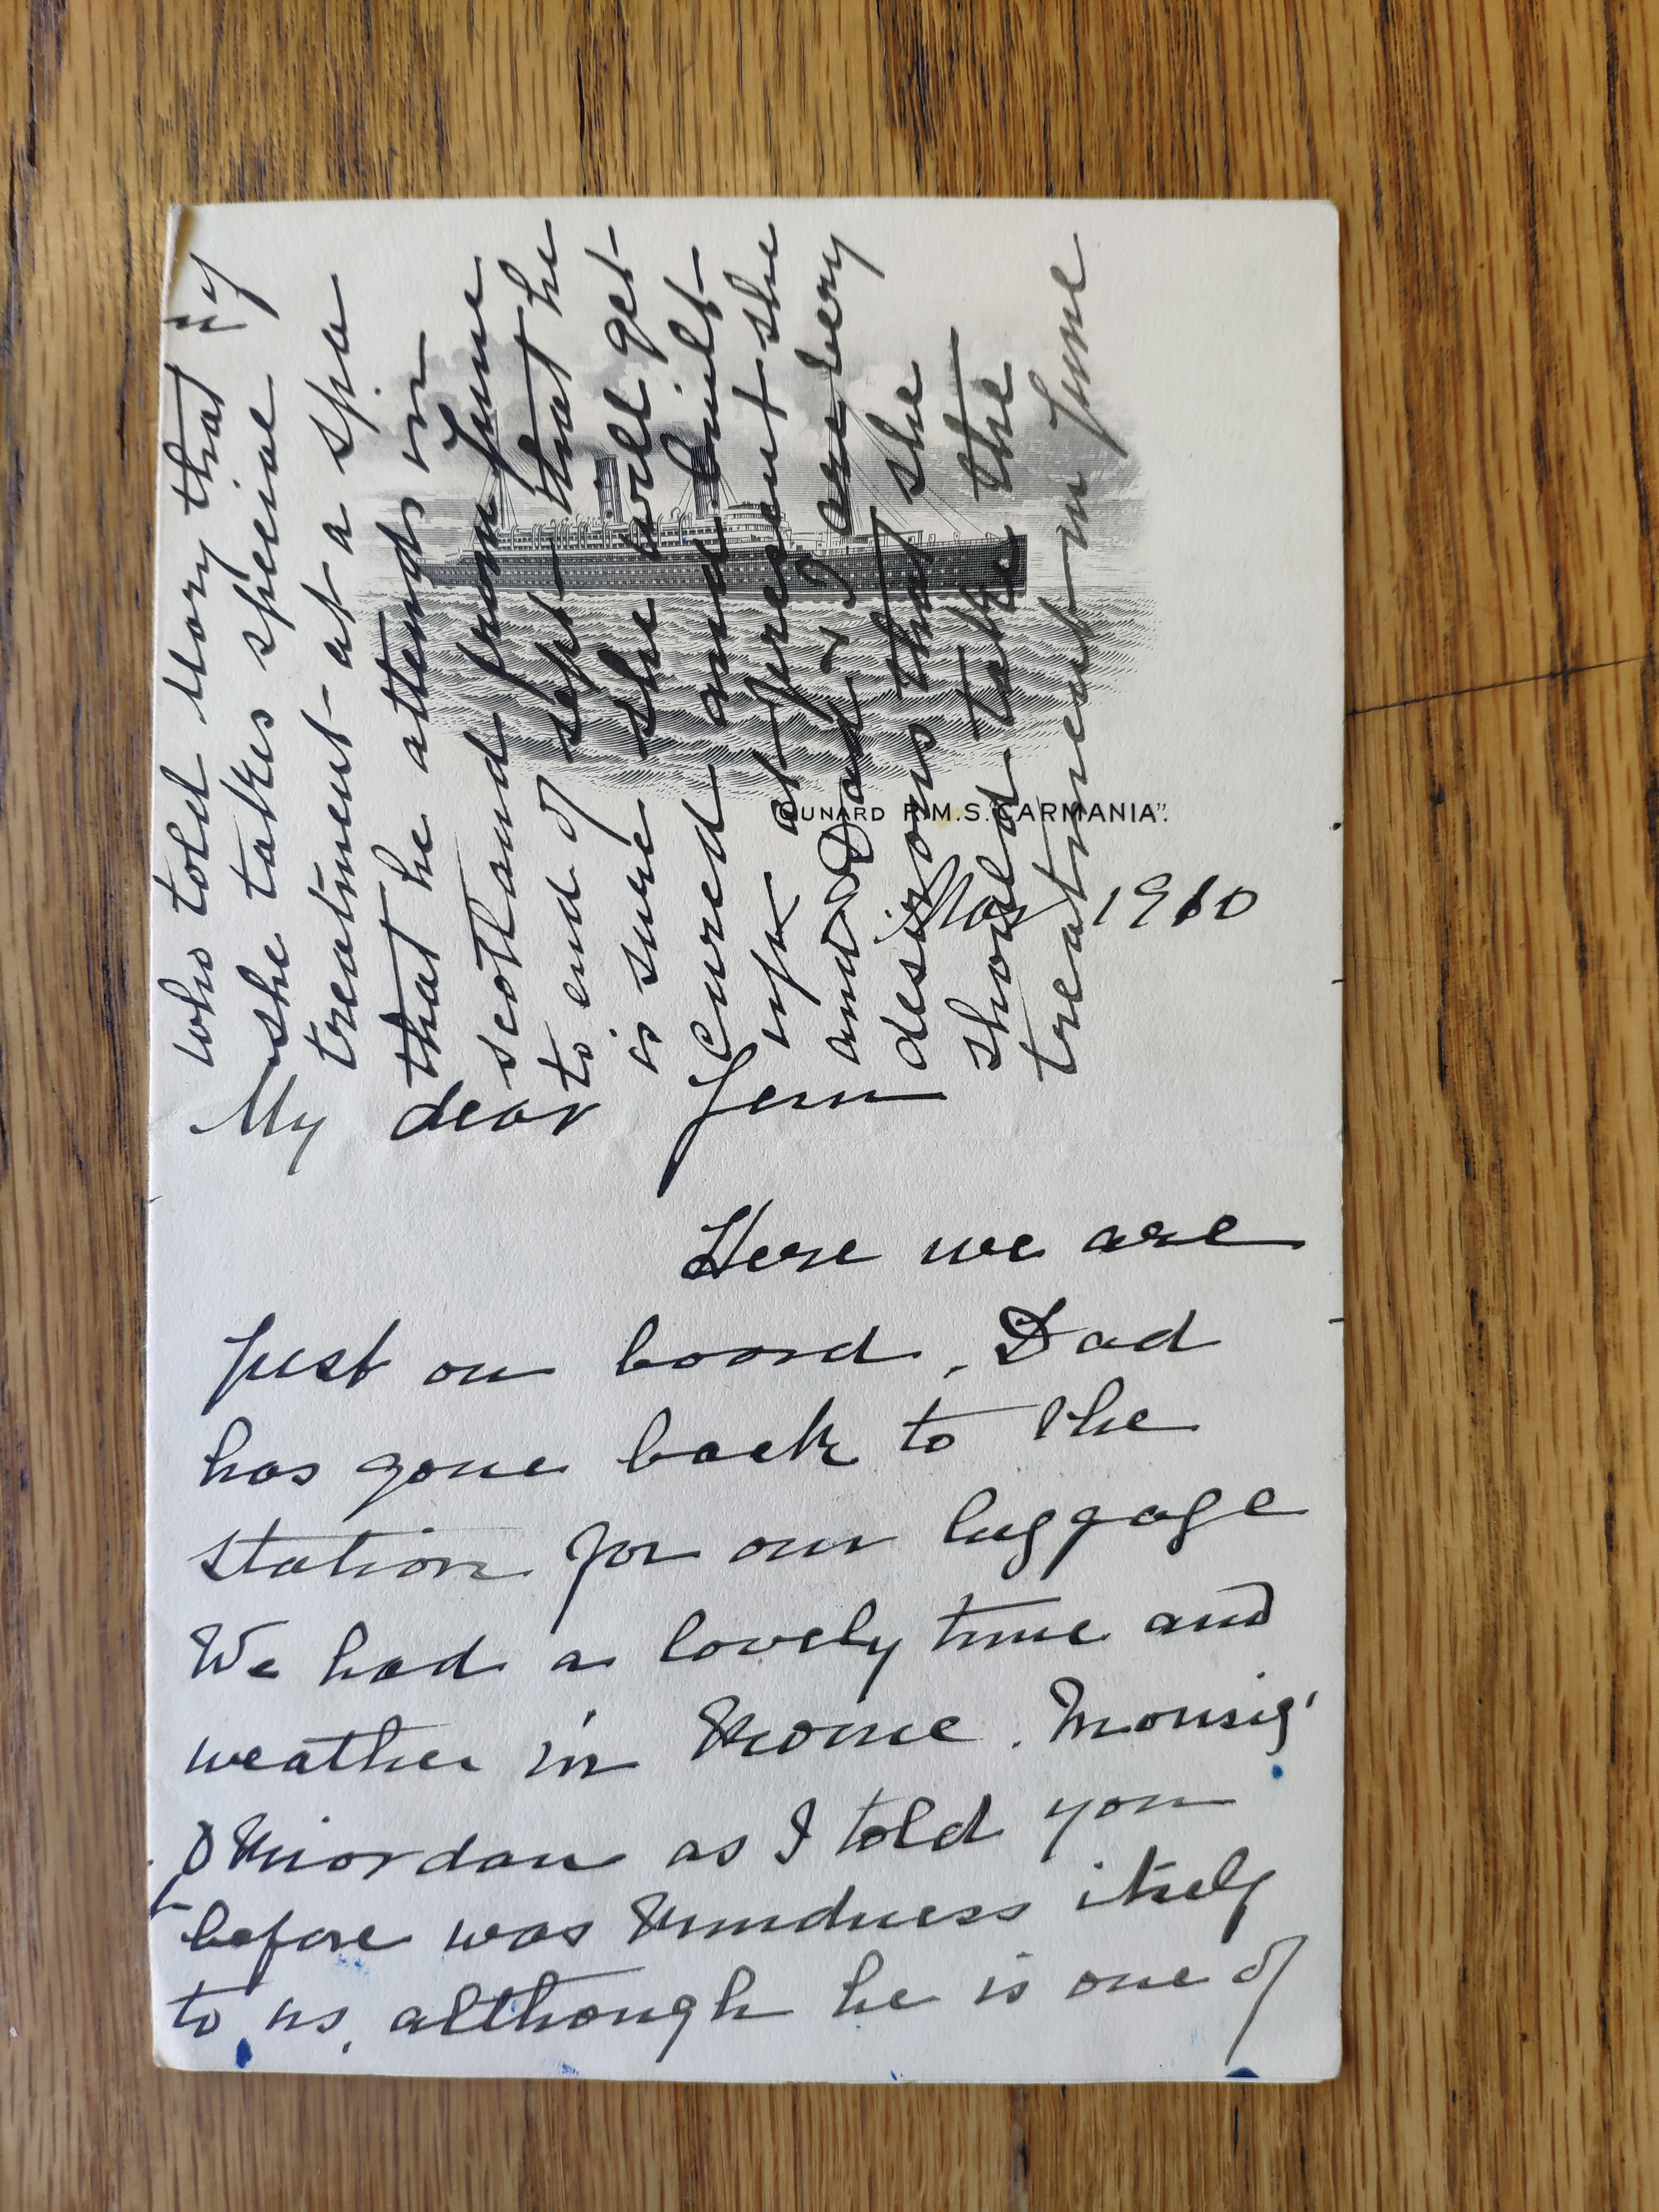 CUNARD R.M.S. "CARMANIA".
Mar 1910
My dear Jem
Here we are
just on board, Dad
has gone back to the
station for our luggage
We had a lovely time and
weather in Rome. Monsig'
O Riordan as I told you
before was kindness itself
to us, although he is one of
who told Mary that if
she takes special
treatment at a spa
that he attends in
scotland from June
to end of Sept that he
is sure she will get
cured and built
up at present she
and Dad & I are very
desirous that she
should take the
treatment in June